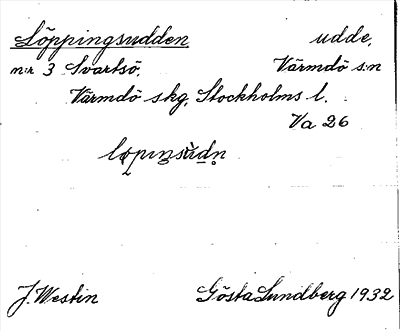 Löppingsudden udde,
n:r 3 Svartsö, Värmdö s:n
Värmdö skg, Stockholms l.
Va 26
J. Westin Gösta Lundberg 1932